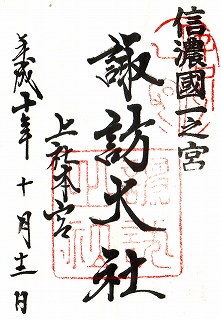 信濃國一之宮
諏訪大社
上社本宮
平成十年十月十二日